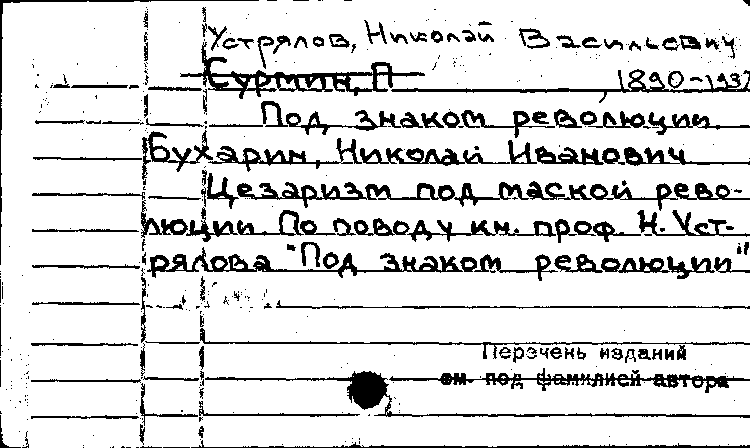 Устрялов, Николай Васильевич
Сурмин, П , 1890-1937
Под знаком революции.
Бухарин, Николай Иванович
Цезаризм под маской рево-
люции. По поводу кн. проф. Н. Уст-
рялова "Под знаком революции"
Перечень изданий
см. под фамилией автора